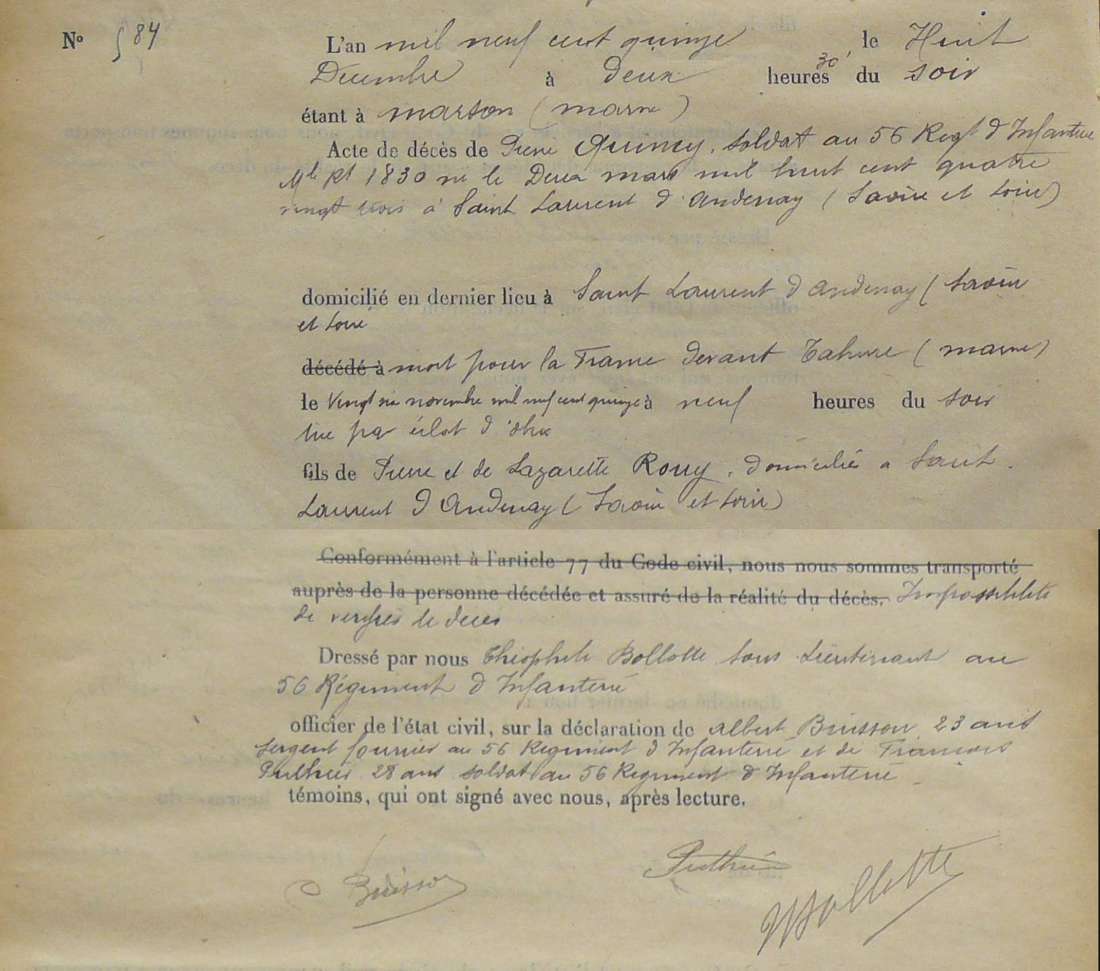 No 84
L'an mil neuf cent quinze le Huit
30'
Decembre à deux heures du soir
étant à marson (marne)
Acte de décès de Pierre Quincy, soldat au 56 Regt d Infanterie
Mle Rt 1830 né le Deux mars mil huit cent quatre
vingt trois à Saint Laurent d'andenay (Saône et Loire)
domicilié en dernier lieu à Saint Laurent d andenay (Saône
et Loire
décédé à mort pour la France devant Tahure (marne)
le Vingt six novembre mil neuf cent quinze à neuf heures du soir
tué par éclat d'obus
fils de Pierre et de Lazarette Rouy, domiciliés à Saint
Laurent d Andenay (Saône et Loire)
Conformément à l'article 77 du Code civil, nous nous sommes transporté
auprès de la personne décédée et assuré de la réalité du décès. Impossibilité
de le deces
Dressé par nous Théophile Bollotte Sous Lieutenant au
56 Régiment d Infanterie
officier de l'état civil, sur la déclaration de albert Buisson 23 ans
Sergent fourrier au 56 Regiment d Infanterie et de Francois
28 ans soldat au 56 Regiment d Infanterie
témoins, qui ont signé avec nous, après lecture.
Buisson
Bollotte